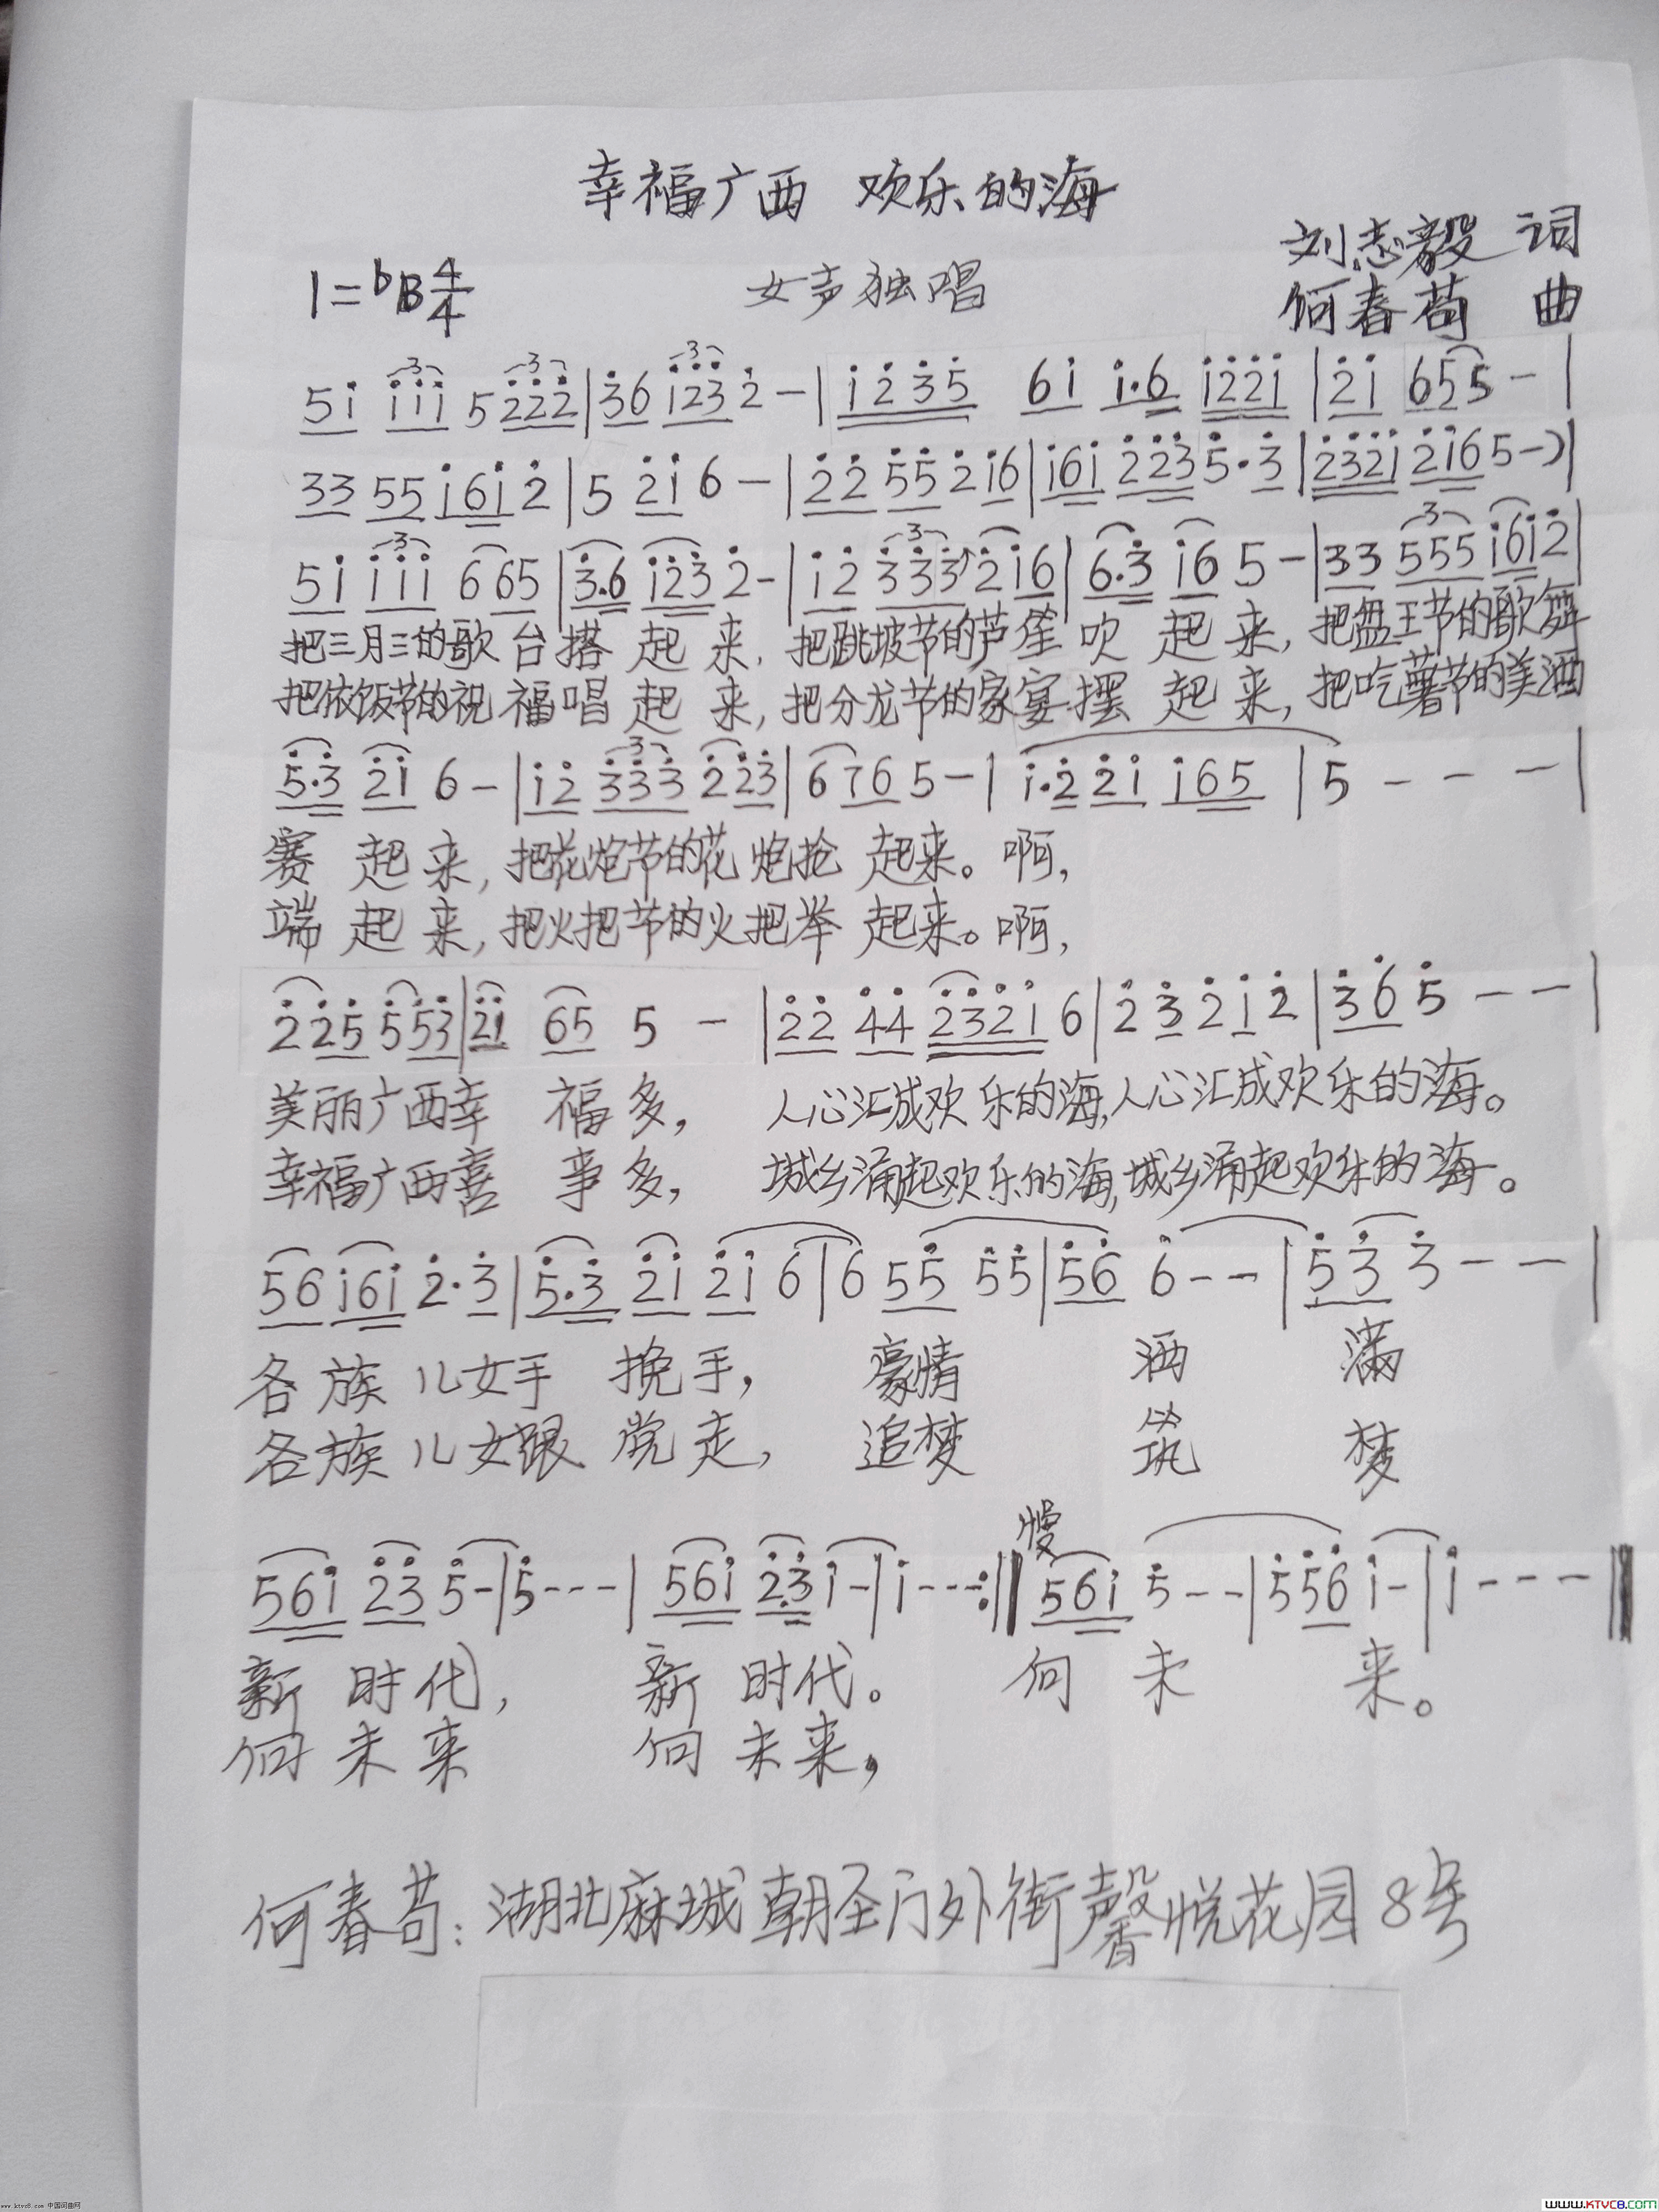 幸福广西 欢乐的海
刘志毅 词
1=♭B 4/4 女声独唱
何春苟 曲
5i iii 5222|36 i232-|i235 6i i·6 i22i|2i 655-|
33 55 i6i2|5 2i6-|22 552i6|i6i 2235·3|232i 2i65-)|
5i iii 665|3·6 i232-|i2 3332i6|6·3 i65-|33 555i6i2|
把三月三的歌台搭起来,把跳坡节的芦笙吹起来,把盘王节的歌舞
把依饭节的祝福唱起来,把分龙节的家宴摆起来,把吃薯节的美酒
5·3 2i 6-|i2 333 223|6765-|i·22i i65|5---|
赛起来,把花炮节的花炮抢起来。啊,
端起来,把火把节的火把举起来。啊,
225 553|2i 65 5-|22 44 232i 6|232i2|365--|
美丽广西幸福多,人心汇成欢乐的海,人心汇成欢乐的海。
幸福广西喜事多,城乡涌起欢乐的海,城乡涌起欢乐的海。
56i6i2·3|5·3 2i 2i 6|6 55 55|56 6--|53 3--|
各族儿女手挽手,豪情洒满
各族儿女跟党走,追梦筑梦
慢
56i 23 5-|5---|56i 23i-|i---:‖56i 5--|556 i-|i---‖
新时代,新时代。向未来。
向未来 向未来,
何春苟:湖北麻城朝圣门外街馨悦花园8号
www.ktvc8.com 中国词曲网
WWW.KTVC8.COM